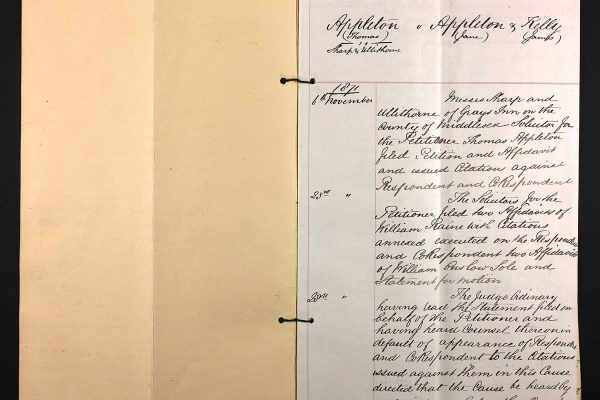 Appleton v Appleton & Kelly
(Thomas) (Jane) (James)
Sharp & Ullithorne
1871
6th November Messrs Sharp and
Ullithorne of Grays Inn in the
County of Middlesex Solicitor for
the Petitioner Thomas Appleton
filed Petition and Affidavit
and issued Citation against
Respondent and CoRespondent
23rd " The Solicitors for the
Petitioner filed two Affidavits of
William Raine with Citations
annexed executed on the Respondent
and CoRespondent two Affidavits
of William Onslow Sole and
Statement for motion
" The Judge Ordinary
having read the Statement filed on
behalf of the Petitioner and
having heard Counsel thereon in
default of appearance of Respondent
and CoRespondent to the Citations
issued against them in this Cause
directed that the Cause be heard by